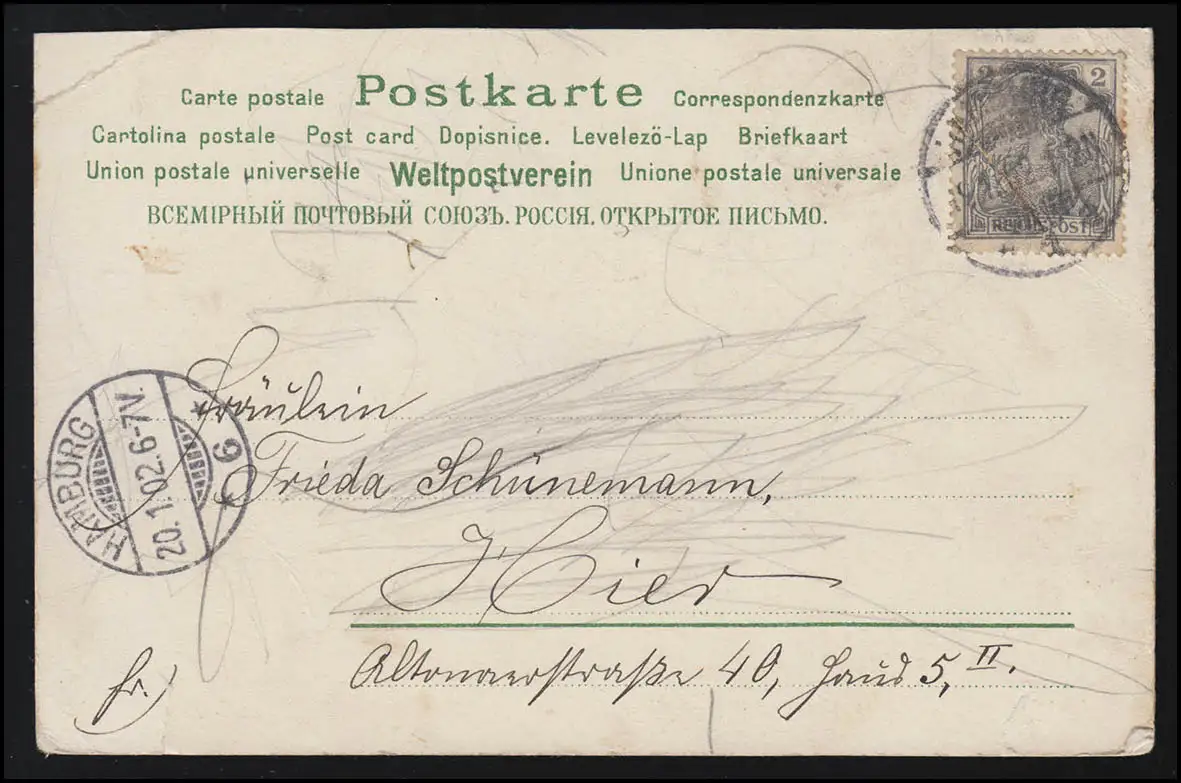 Carte postale Postkarte Correspondenzkarte
Cartolina postale Post card Dopisnice. Levelezö-Lap Briefkaart
Union postale universelle Weltpostverein Unione postale universale
ВСЕМІРНЫЙ ПОЧТОВЫЙ СОЮЗЪ. РОССІЯ. ОТКРЫТОЕ ПИСЬМО.
2 2
REICHSPOST
Fräulein
Frieda Schünemann,
Hier
Altonaerstraße 40, Haus 5, II.
fr.
HAMBURG
20.1.02.6-7V.
* 6 *